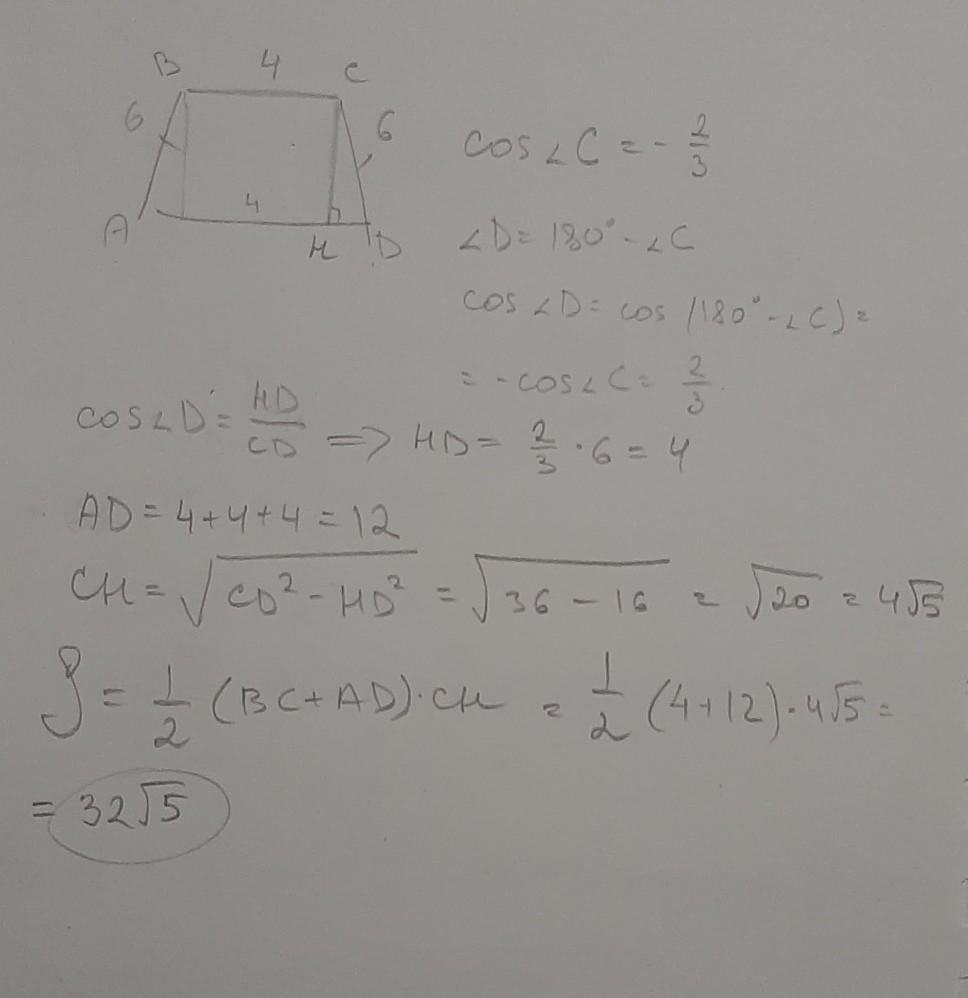 B 4 C
6 6
A 4 H D
cos∠C = -2/3
∠D = 180° - ∠C
cos∠D = cos(180° - ∠C) =
= -cos∠C = 2/3.
cos∠D = HD/CD => HD = 2/3 · 6 = 4
AD = 4+4+4 = 12
CH = √(CD² - HD²) = √(36 - 16) = √20 = 4√5
S = 1/2 (BC + AD) · CH = 1/2 (4+12) · 4√5 =
= 32√5